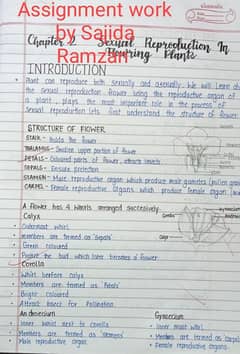 Assignment work
by Sajida
Ramzan
Chapter 2 Sexual Reproduction In
Flowering Plants
INTRODUCTION
Plant can reproduce both sexually and asexually. We will learn
the sexual reproduction. flower being the reproductive organ of
a plant, plays the most important role in the process of
sexual reproduction lets first understand the structure of flower.
STRICTURE OF FLOWER
STALK - Holds the flower
THALAMUS - Swollen upper portion of flower
PETALS - Coloured parts of flower, attracts insects
SEPALS - Ensure protection
STAMEN - Male reproductive organ which produce male gametes (pollen grain
CARPEL - Female reproductive organs which produce female
A flower has 4 whorls arranged successively
Calyx
Outermost whorl
members are termed as "sepals"
Green coloured
Protect the bud
Corolla
Whorl before calyx
Members are termed as "Petals"
Bright coloured
Attract insect for Pollination
Androecium
Inner whorl next to corolla
Members are termed as "stamens"
Male reproductive organ
Gynoecium
Inner most whorl
Members are termed as
Female reproductive organs